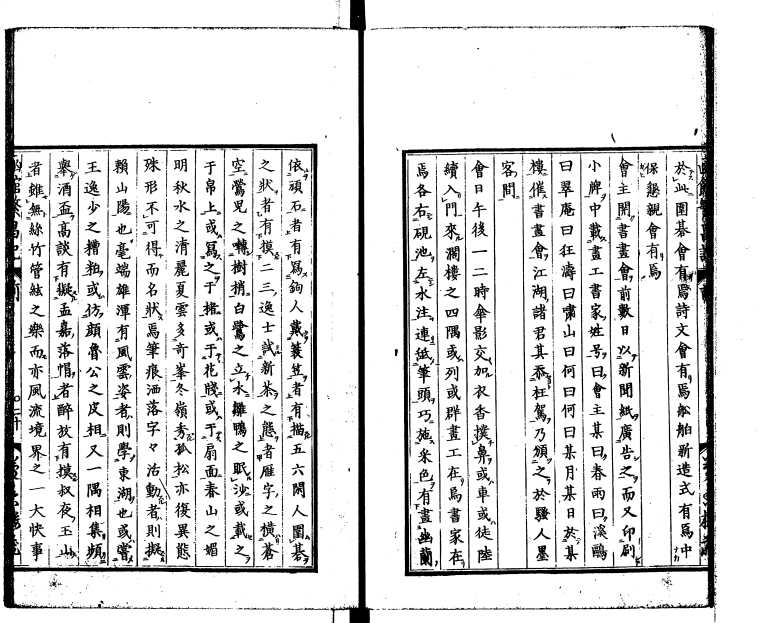 於此圍碁會有焉詩文會有焉舩舶新造式有焉中
保懇親會有焉
會主開書畫會前數日以新聞紙廣告之而又印刷
小牌中載畫工書家姓号曰會主某曰春雨曰溪鷗
曰翠庵曰狂濤曰嘯山曰何曰何曰某月某日於某
樓催書畫會江湖諸君其忝枉駕乃頒之於騷人墨
客間
會日午後一二時傘影交加衣香撲鼻或車或徒陸
續入門來瀾樓之四隅或列或群畫工在焉書家在
焉各右硯池左水注連紙筆頭巧施采色有畫幽蘭
依頑石者有寫釣人戴蓑笠者有描五六閑人圍碁
之狀者有摸二三逸士試新茶之態者雁字之橫蒼
空鶯児之囀樹梢白鷺之立水雛鴨之眠沙或載之
于帛上或寫之于楮或于花牋或于扇面春山之媚
明秋水之清麗夏雲多奇峯冬嶺秀孤松亦復異態
殊形不可得而名狀焉筆痕洒落字々活動者則擬
賴山陽也毫端雄渾有風雲姿者則學東湖也或嘗
王逸少之糟粕或仿顔魯公之皮相又一隅相集頻
擧酒盃高談有擬孟嘉落帽者醉放有摸叔夜玉山
者雖無絲竹管絃之樂而亦風流境界之一大快事